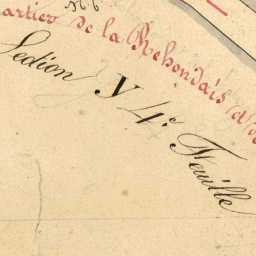 artier de la Rehondais
Section Y 4e Feuille